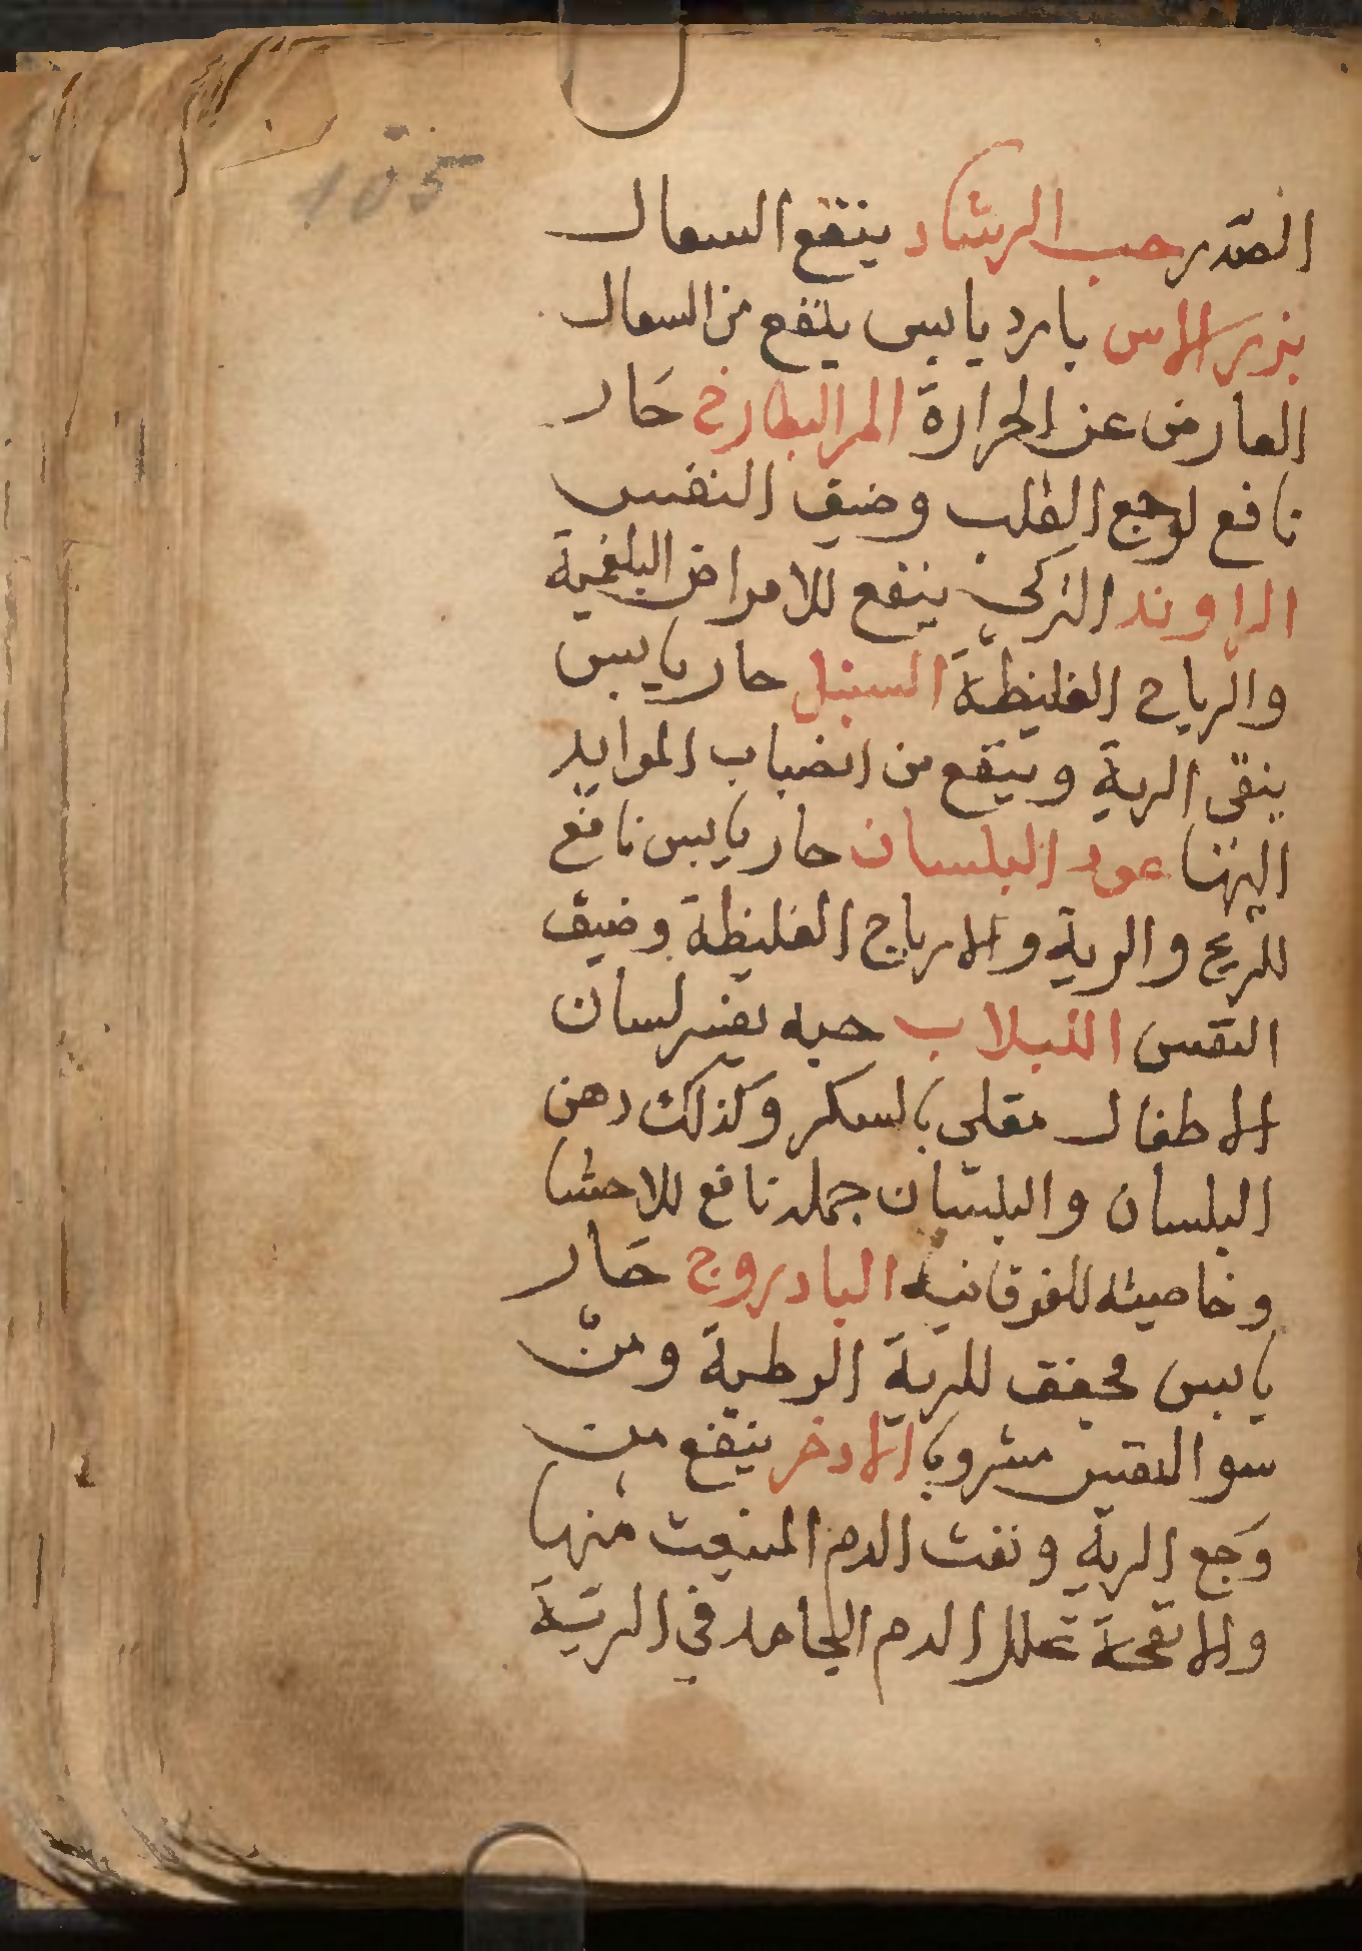 105
الصّدر حب الرشاد ينفع السعال
بزر الاس بارد يابس ينفع من السعال
العارض عن الحرارة المر البطارخ حَار
نافع لوجع القلب وضيق النفس
الراوند التركي ينفع للامراض البلغمية
والرياح الغليظة السنبل حار يابس
ينقى الرية وينفع من انضباب المواير
اليها عود البلسان حار يابس نافع
للريح والرية والارياح الغليظة وضيق
النفس اللبلاب حبه يفسر لسان
الاطفال مقلي بالسكر وكذلك دهن
البلسان والبلسان جمله نافع للاحشا
وخاصيته للفوقانيه البادروج حَار
يابس مجفف للرية الرطبة ومن
سو النفس مشروبا الادخر ينفع من
وَجع الرية ونفث الدم المنبعث منها
والانفحة تحلل الدم الجامد في الرية